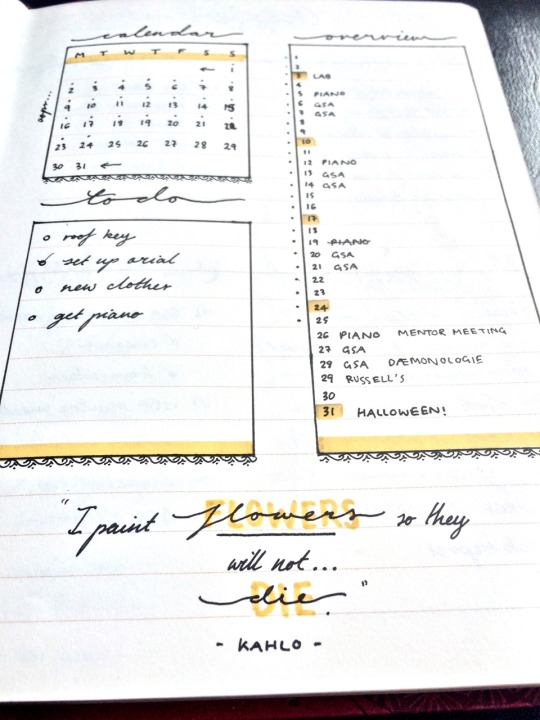 calendar
M T W T F S S
← 1
2 3 4 5 6 7 8
9 10 11 12 13 14 15
16 17 18 19 20 21 22
23 24 25 26 27 28 29
30 31 ←
to do
roof key
set up arial
new clothes
get piano
overview
1
2
3 LAB
4
5 PIANO
6 GSA
7 GSA
8
9
10
11
12 PIANO
13 GSA
14 GSA
15
16
17
18
19 PIANO
20 GSA
21 GSA
22
23
24
25
26 PIANO MENTOR MEETING
27 GSA
28 GSA DÆMONOLOGIE
29 RUSSELL'S
30
31 HALLOWEEN!
"I paint flowers so they
FLOWERS
will not...
die."
DIE.
- KAHLO -